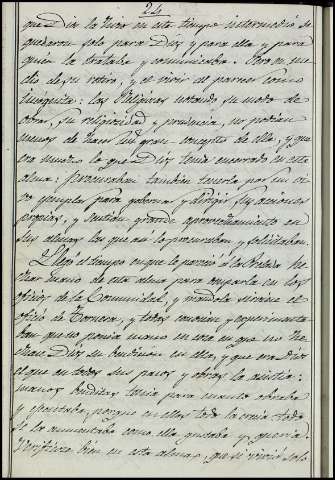 24
que Dios la hizo en este tiempo intermedio se
quedaron solo para Dios y para ella y para
quien la trataba y comunicaba. Pero en me-
dio de su retiro, y el vivir al parecer como
incógnita: las Religiosas notando su modo de
obrar, su religiosidad y prudencia, no podían
menos de hacer un gran concepto de ella, y que
era mucho lo que Dios tenía encerrado en esta
alma: procuraban también tenerla por un vi-
vo ejemplar para gobernar y dirigir sus acciones
propias, y sentían grande aprovechamiento en
sus almas las que así lo procuraban y solicitaban.
Llegó el tiempo en que le pareció a la Prelada he-
char mano de esta alma para ocuparla en los
oficios de la Comunidad, y mandola sirviese el
oficio de Tornera, y todos conocían y experimenta-
ban que no ponía mano en cosa en que no he-
chase Dios su bendición en ella, y que era Dios
el que en todos sus pasos y obras la asistía:
manos benditas tenía para cuanto obraba
y ejecutaba, porque en ellas todo lo crecía todo
se lo aumentaba como ella gustaba y quería.
Verificose bien en esta alma, que si vivió solo